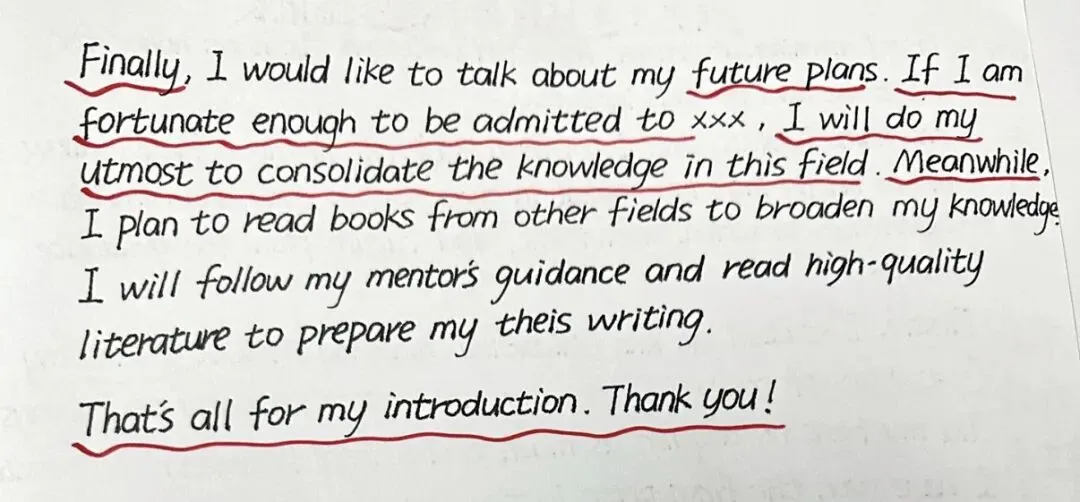 Finally, I would like to talk about my future plans. If I am
fortunate enough to be admitted to xxx, I will do my
utmost to consolidate the knowledge in this field. Meanwhile,
I plan to read books from other fields to broaden my knowledge
I will follow my mentor's guidance and read high-quality
literature to prepare my theis writing.
That's all for my introduction. Thank you!